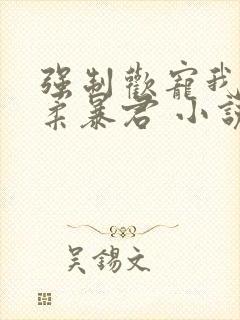 强制歡寵我
柔暴君 小說
吴錫文